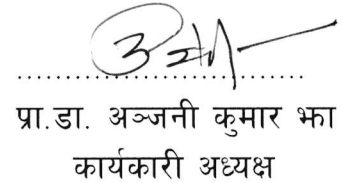 प्रा.डा. अञ्जनी कुमार झा
कार्यकारी अध्यक्ष